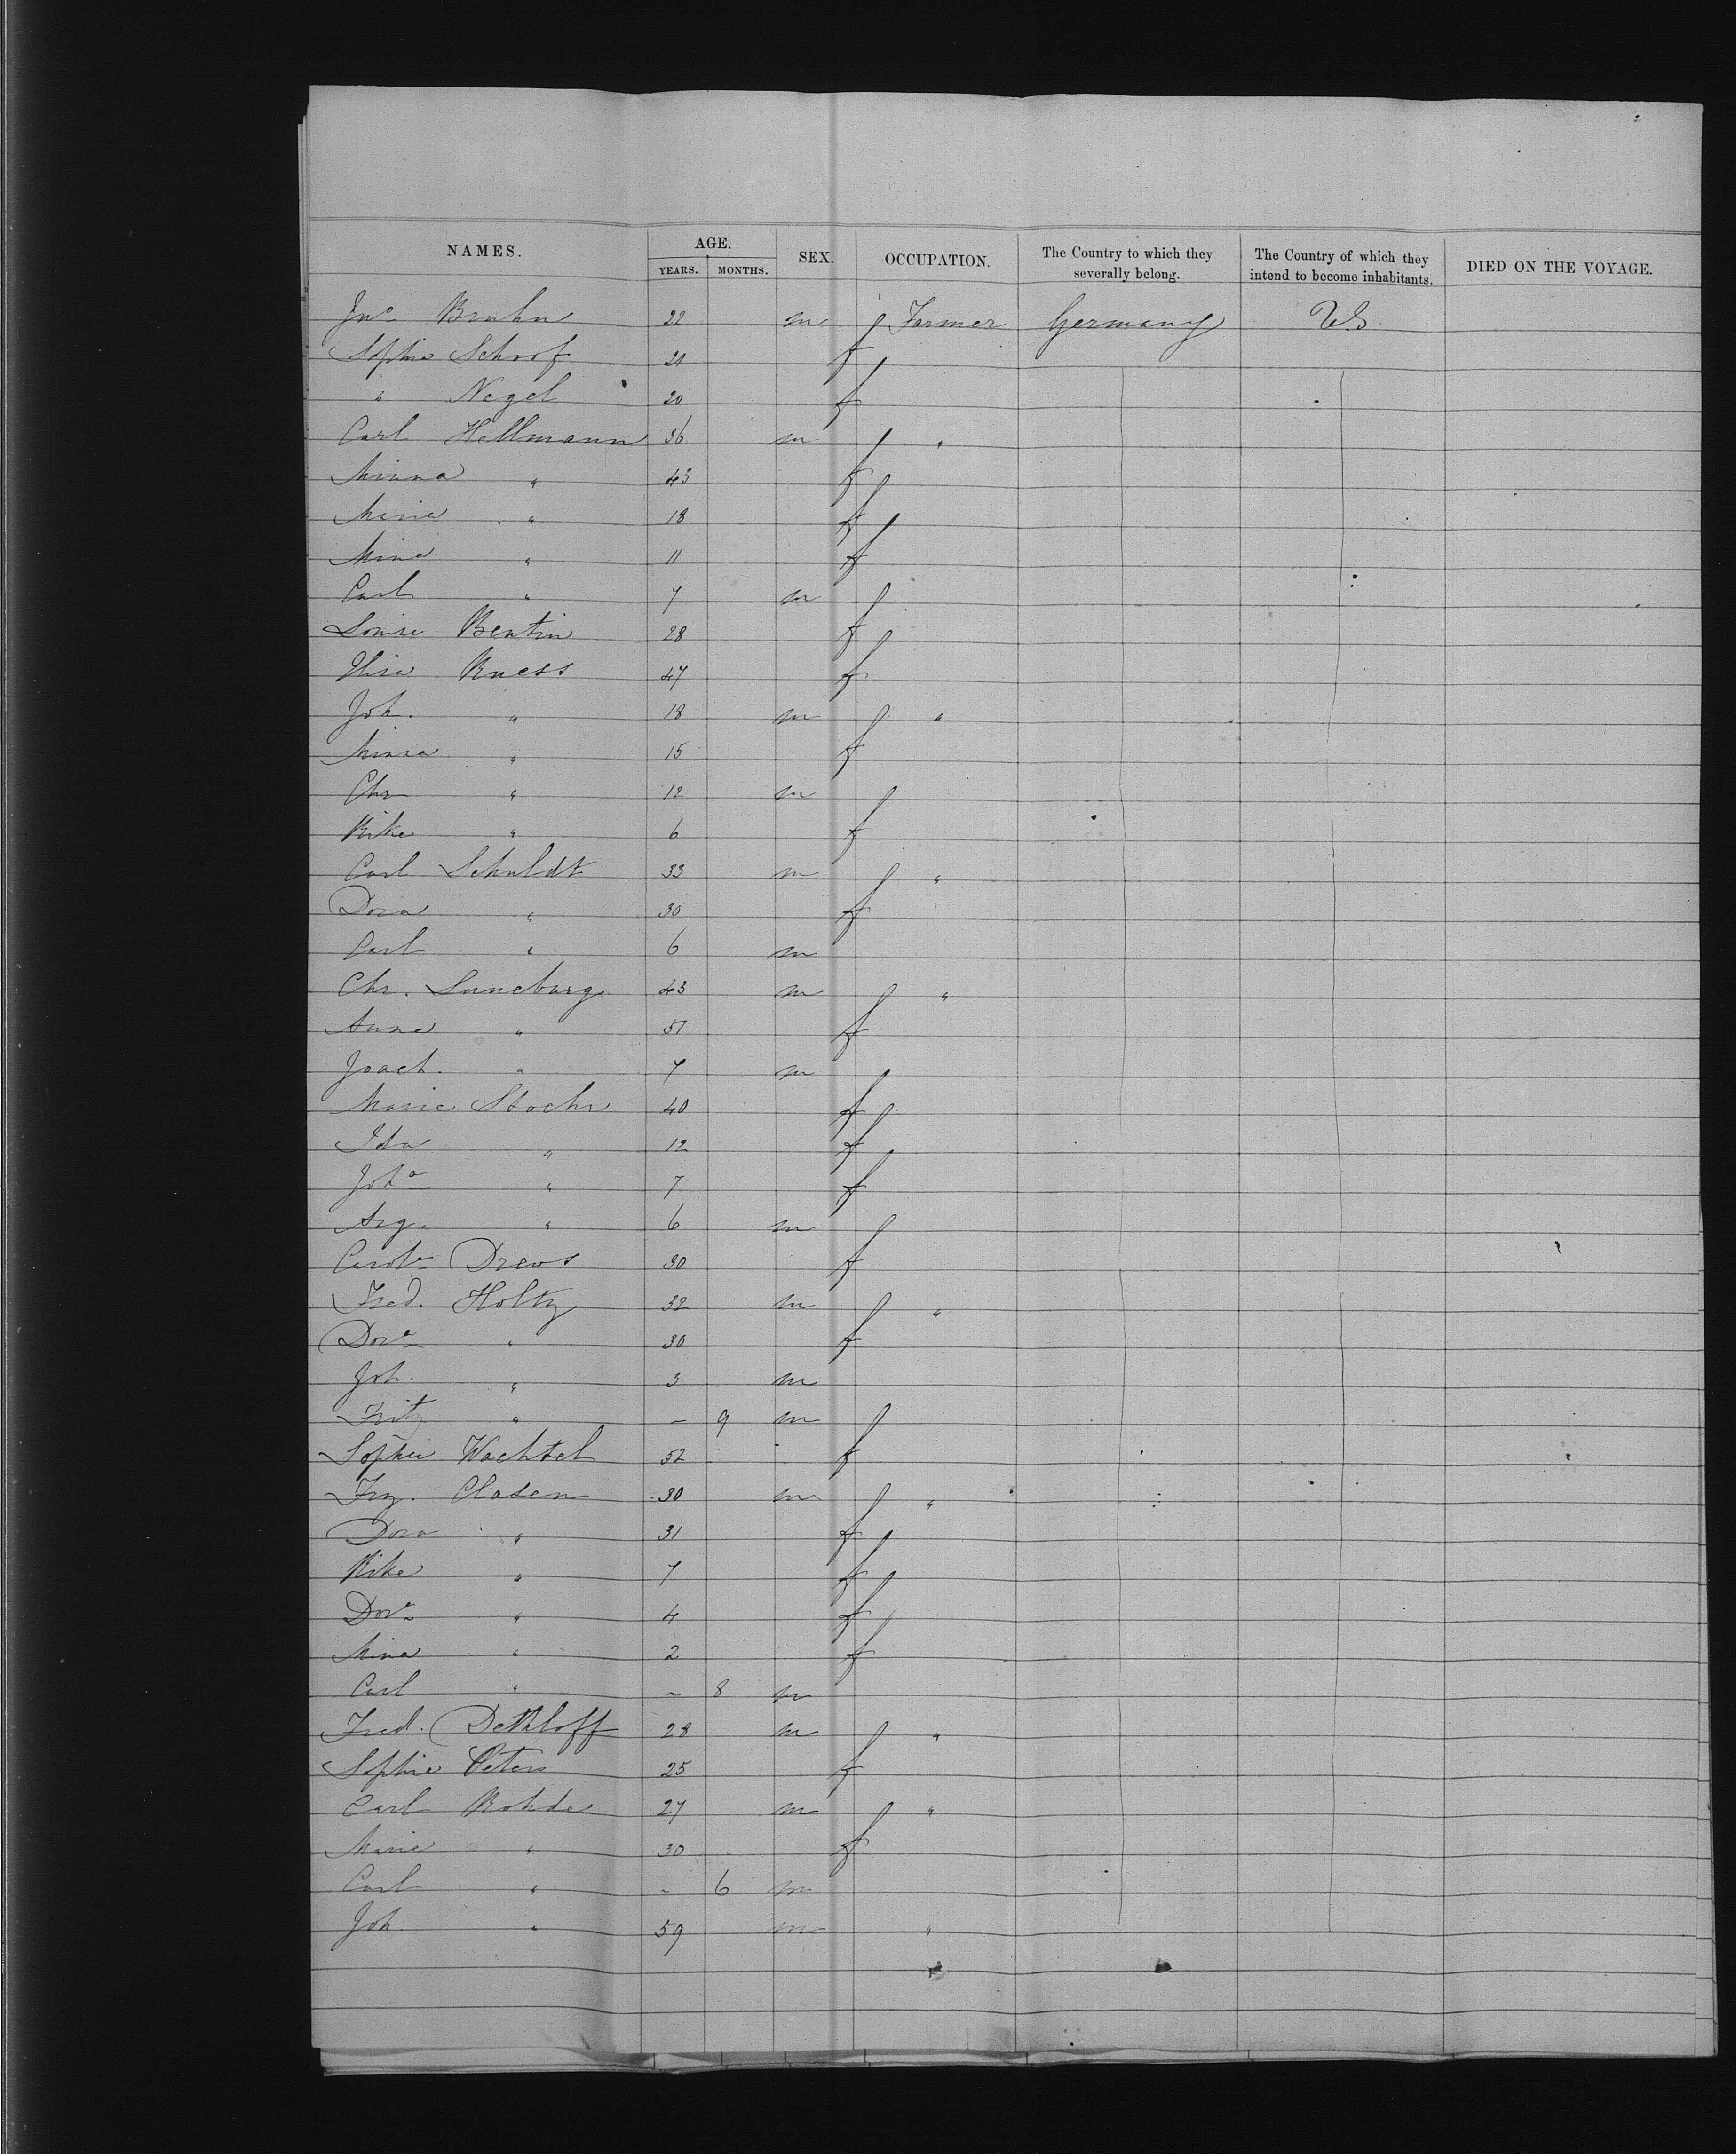 NAMES. AGE. SEX. OCCUPATION. The Country to which they severally belong. The Country of which they intend to become inhabitants. DIED ON THE VOYAGE.
YEARS. MONTHS.
Jno Bruhn 22 m Farmer Germany US
Sophie Schoof 21 f
" Negel 20 f
Carl Hellmann 36 m "
Minna " 43 f
Maria " 18 f
Mina " 11 f
Carl " 7 m
Louise Bentin 28 f
Kuess 47 f
Joh. " 18 m "
Minna " 15 f
Chr " 12 m
Rike " 6 f
Carl Schuldt 33 m "
Dora " 30 f
Carl " 6 m
Chr. Luneburg 43 m "
Anna " 51 f
Joach. " 7 m
Marie Stoehr 40 f
Ida " 12 f
Joha " 7 f
Aug. " 6 m
Carole Drews 30 f
Fred. Holtz 32 m "
Dora " 30 f
Joh. " 3 m
Fritz " - 9 m
Sophie Wachtel 52 f
Frz. Clasen 30 m "
Dora " 31 f
Rike " 7 f
Dora " 4 f
Mina " 2 f
Carl " - 8 m
Fred. Dethloff 28 m "
Sophie Peters 25 f
Carl Rohde 27 m "
Marie " 30 f
Carl " - 6 m
Joh. " 59 m "